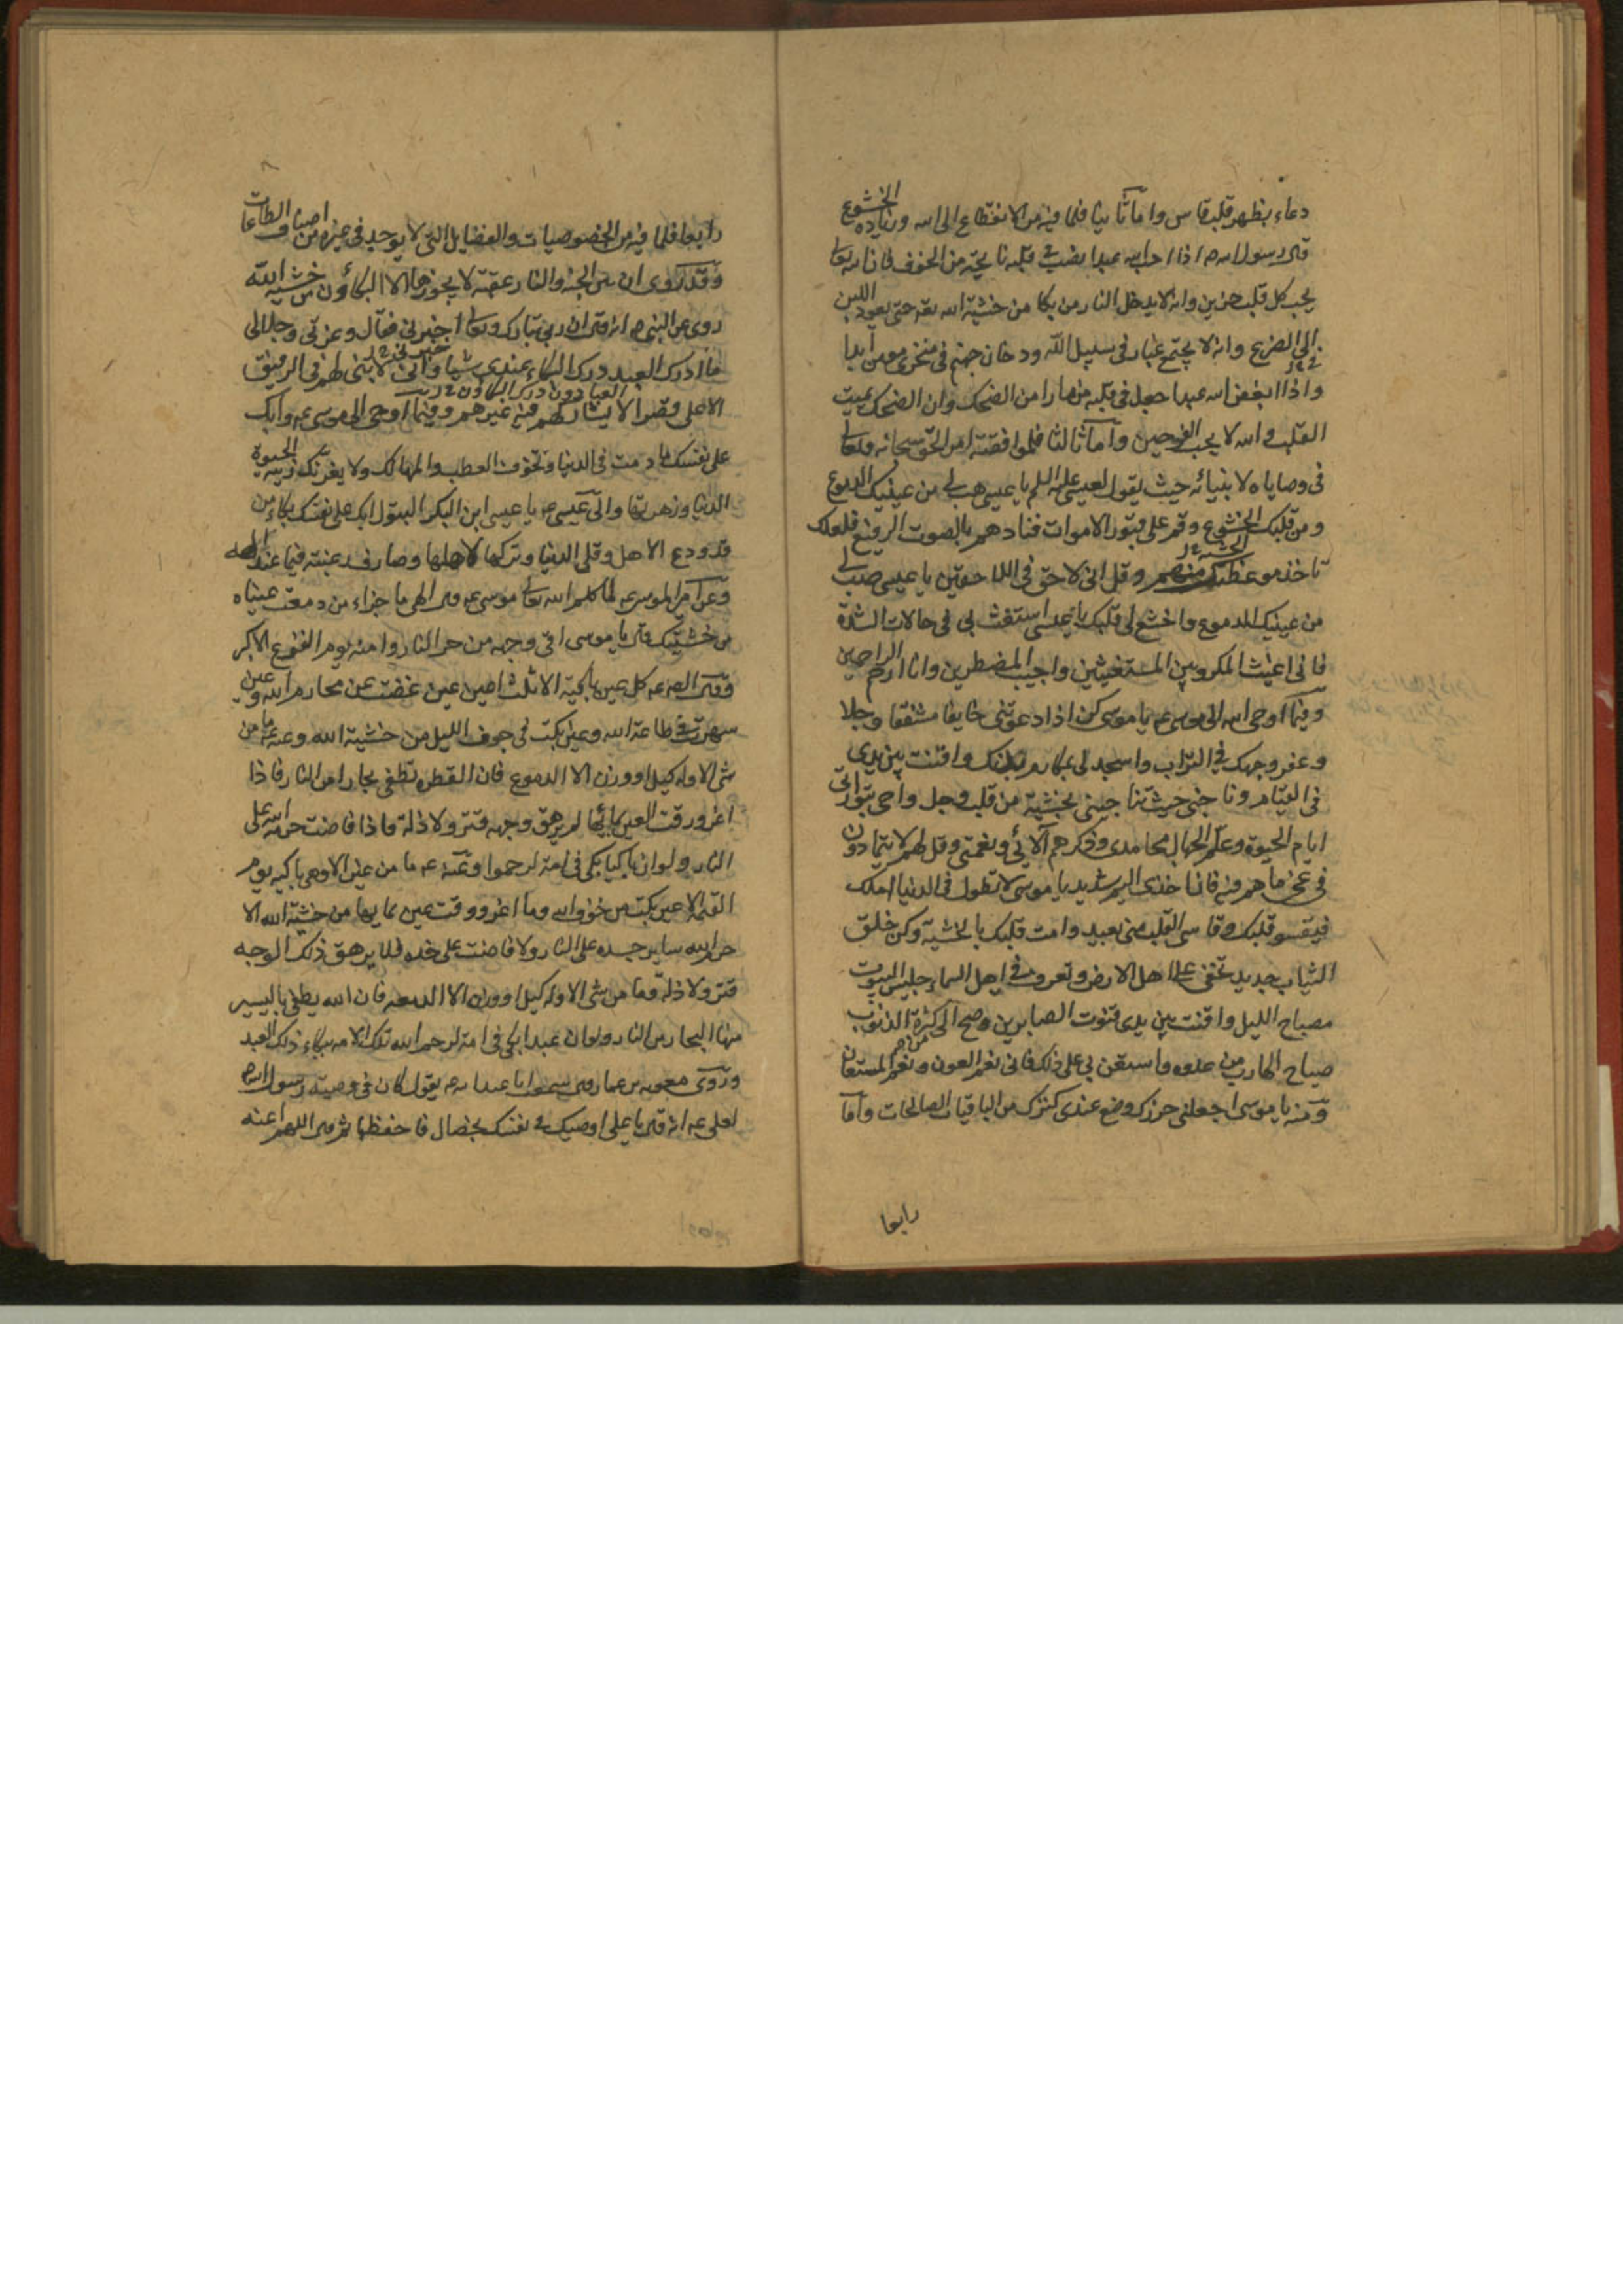 دعاء بظهر قلب قاس واما ثانيا فلما فيه من الانقطاع الى الله وزيادة الخشوع
قال رسول الله ص اذا احب الله عبدا نصب في قلبه نايحة من الحزن فان الله تعالى
يحب كل قلب حزين وانه لا يدخل النار من بكا من خشية الله تعه حتى يعود اللبن
الى الضرع وانه لا يجتمع غبار في سبيل الله ودخان جهنم في منخري مومن ابدا
واذا ابغض الله عبدا جعل في قلبه مزمارا من الضحك وان الضحك يميت
القلب والله لا يحب الفرحين واما ثالثا فلموافقته امر الحق سبحانه وتعالى
في وصاياه لانبيائه حيث يقول لعيسى عليه السلم يا عيسى هب لي من عينيك الدموع
ومن قلبك الخشوع وقم على قبور الاموات فنادهم بالصوت الرفيع فلعلك
تاخذ موعظتك منهم وقل اني لاحق في اللاحقين يا عيسى صب لي
من عينيك الدموع واخشع لي قلبك يا عيسى استغث بي في حالات الشدة
فاني اغيث المكروبين المستغيثين واجيب المضطرين وانا ارحم الراحمين
وفيما اوحى الله الى موسى ع يا موسى كن اذا دعوتني خايفا مشفقا وجلا
وعفر وجهك في التراب واسجد لي بمكارم بدنك واقنت بين يدي
في القيام وناجني حيث تناجيني بخشية من قلب وجل واحي بتوراتي
ايام الحيوة وعلم الجهال محامدي وذكرهم آلائي ونعمتي وقل لهم لا يتمادون
في غي ما هم فيه فان اخذي اليم شديد يا موسى لا تطول في الدنيا املك
فيقسو قلبك وقاسي القلب مني بعيد وامت قلبك بالخشية وكن خلق
الثياب جديد تخفى على اهل الارض وتعرف في اهل السماء جليس البيوت
مصباح الليل واقنت بين يدي قنوت الصابرين وصح الي من كثرة الذنوب
صياح الهارب من عدوه واستعن بي على ذلك فاني نعم العون ونعم المستعان
ومنه يا موسى اجعلني حرزك وضع عندي كنزك من الباقيات الصالحات واما
رابعا
رابعا فلما فيه من الخصوصيات والفضايل التي لا يوجد في غيره من اصناف الطاعات
وقد روى ان بين الجنة والنار عقبة لا يجوزها الا البكاؤن من خشية الله
روى عن النبي ص انه قال ان ربي تبارك وتعالى اخبرني فقال وعزتي وجلالي
ما ادرك العبد درك البكاء عندي شيئا واني لابني لهم في الرفيق
العبادون درك البكاؤن
الاعلى قصرا لا يشاركهم فيه غيرهم وفيما اوحى الى موسى ع وابك
على نفسك ما دمت في الدنيا وتخوف العطب والمهالك ولا يغرنك زينة الحيوة
الدنيا وزهرتها والى عيسى ع يا عيسى ابن البكر البتول ابك على نفسك بكاء من
قد ودع الاهل وقلى الدنيا وتركها لاهلها وصار رغبته فيما عند الهه
وعن امير الموسى لما كلم الله تعالى موسى ع قال الهي ما جزاء من دمعت عيناه
من خشيتك قال يا موسى اقي وجهه من حر النار وامنه يوم الفزع الاكبر
وقال الص ع كل عين باكية الا ثلث اعين عين غضت عن محارم الله وعين
سهرت في طاعة الله وعين بكت في جوف الليل من خشية الله وعنه ع ما من
شئ الا وله كيل او وزن الا الدموع فان القطره تطفي بحارا من النار فاذا
اغرورقت العين بمائها لم يرهق وجهه قتر ولا ذلة فاذا فاضت حرمه الله على
النار ولو ان باكيا بكى في امة لرحموا وعنه ع ما من عين الا وهي باكيه يوم
القيمة الا عين بكت من خوف الله وما اغرورقت عين بمايها من خشية الله الا
حرم الله ساير جسده على النار ولا فاضت على خده فلا يرهق ذلك الوجه
قتر ولا ذلة وما من شئ الا وله كيل او وزن الا الدمعه فان الله يطفي باليسير
منها البحار من النار ولو ان عبدا بكى في امة لرحم الله تلك الامه ببكاء ذلك العبد
وروى معويه بن عمار قال سمعت ابا عبد الله ع يقول كان في وصية رسول الله ص
لعلي ع انه قال يا علي اوصيك في نفسك بخصال فاحفظها ثم قال اللهم اعنه